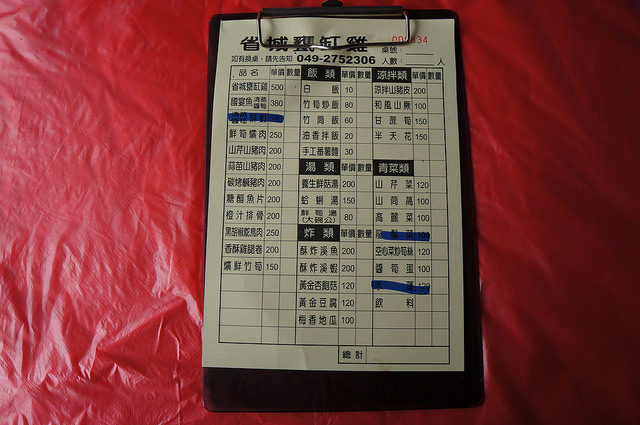 省城甕缸雞
桌號:
如有換桌,請先告知 049-2752306 人數: 人
品名 單價 數量
省城甕缸雞 500
國宴魚 清蒸 醬燒 380
鮮筍爌肉 250
山芹山豬肉 200
蒜苗山豬肉 200
碳烤鹹豬肉 200
糖醋魚片 200
橙汁排骨 200
黑胡椒鴕鳥肉 250
香酥雞腿卷 200
爌鮮竹筍 150
飯類 單價 數量
白飯 10
竹筍炒飯 80
竹筒飯 60
油香拌飯 20
手工番薯麵 30
湯類 單價 數量
養生鮮菇湯 200
蛤蜊湯 150
鮮筍湯 (大碗公) 80
炸類 單價 數量
酥炸溪魚 200
酥炸溪蝦 200
黃金杏鮑菇 120
黃金豆腐 120
梅香地瓜 100
涼拌類 單價 數量
涼拌山豬皮 200
和風山蕨 100
甘蔗筍 150
半天花 150
青菜類
山芹菜 120
山茼蒿 100
高麗菜 100
空心菜炒筍絲 120
醬筍蛋 100
飲料
總計